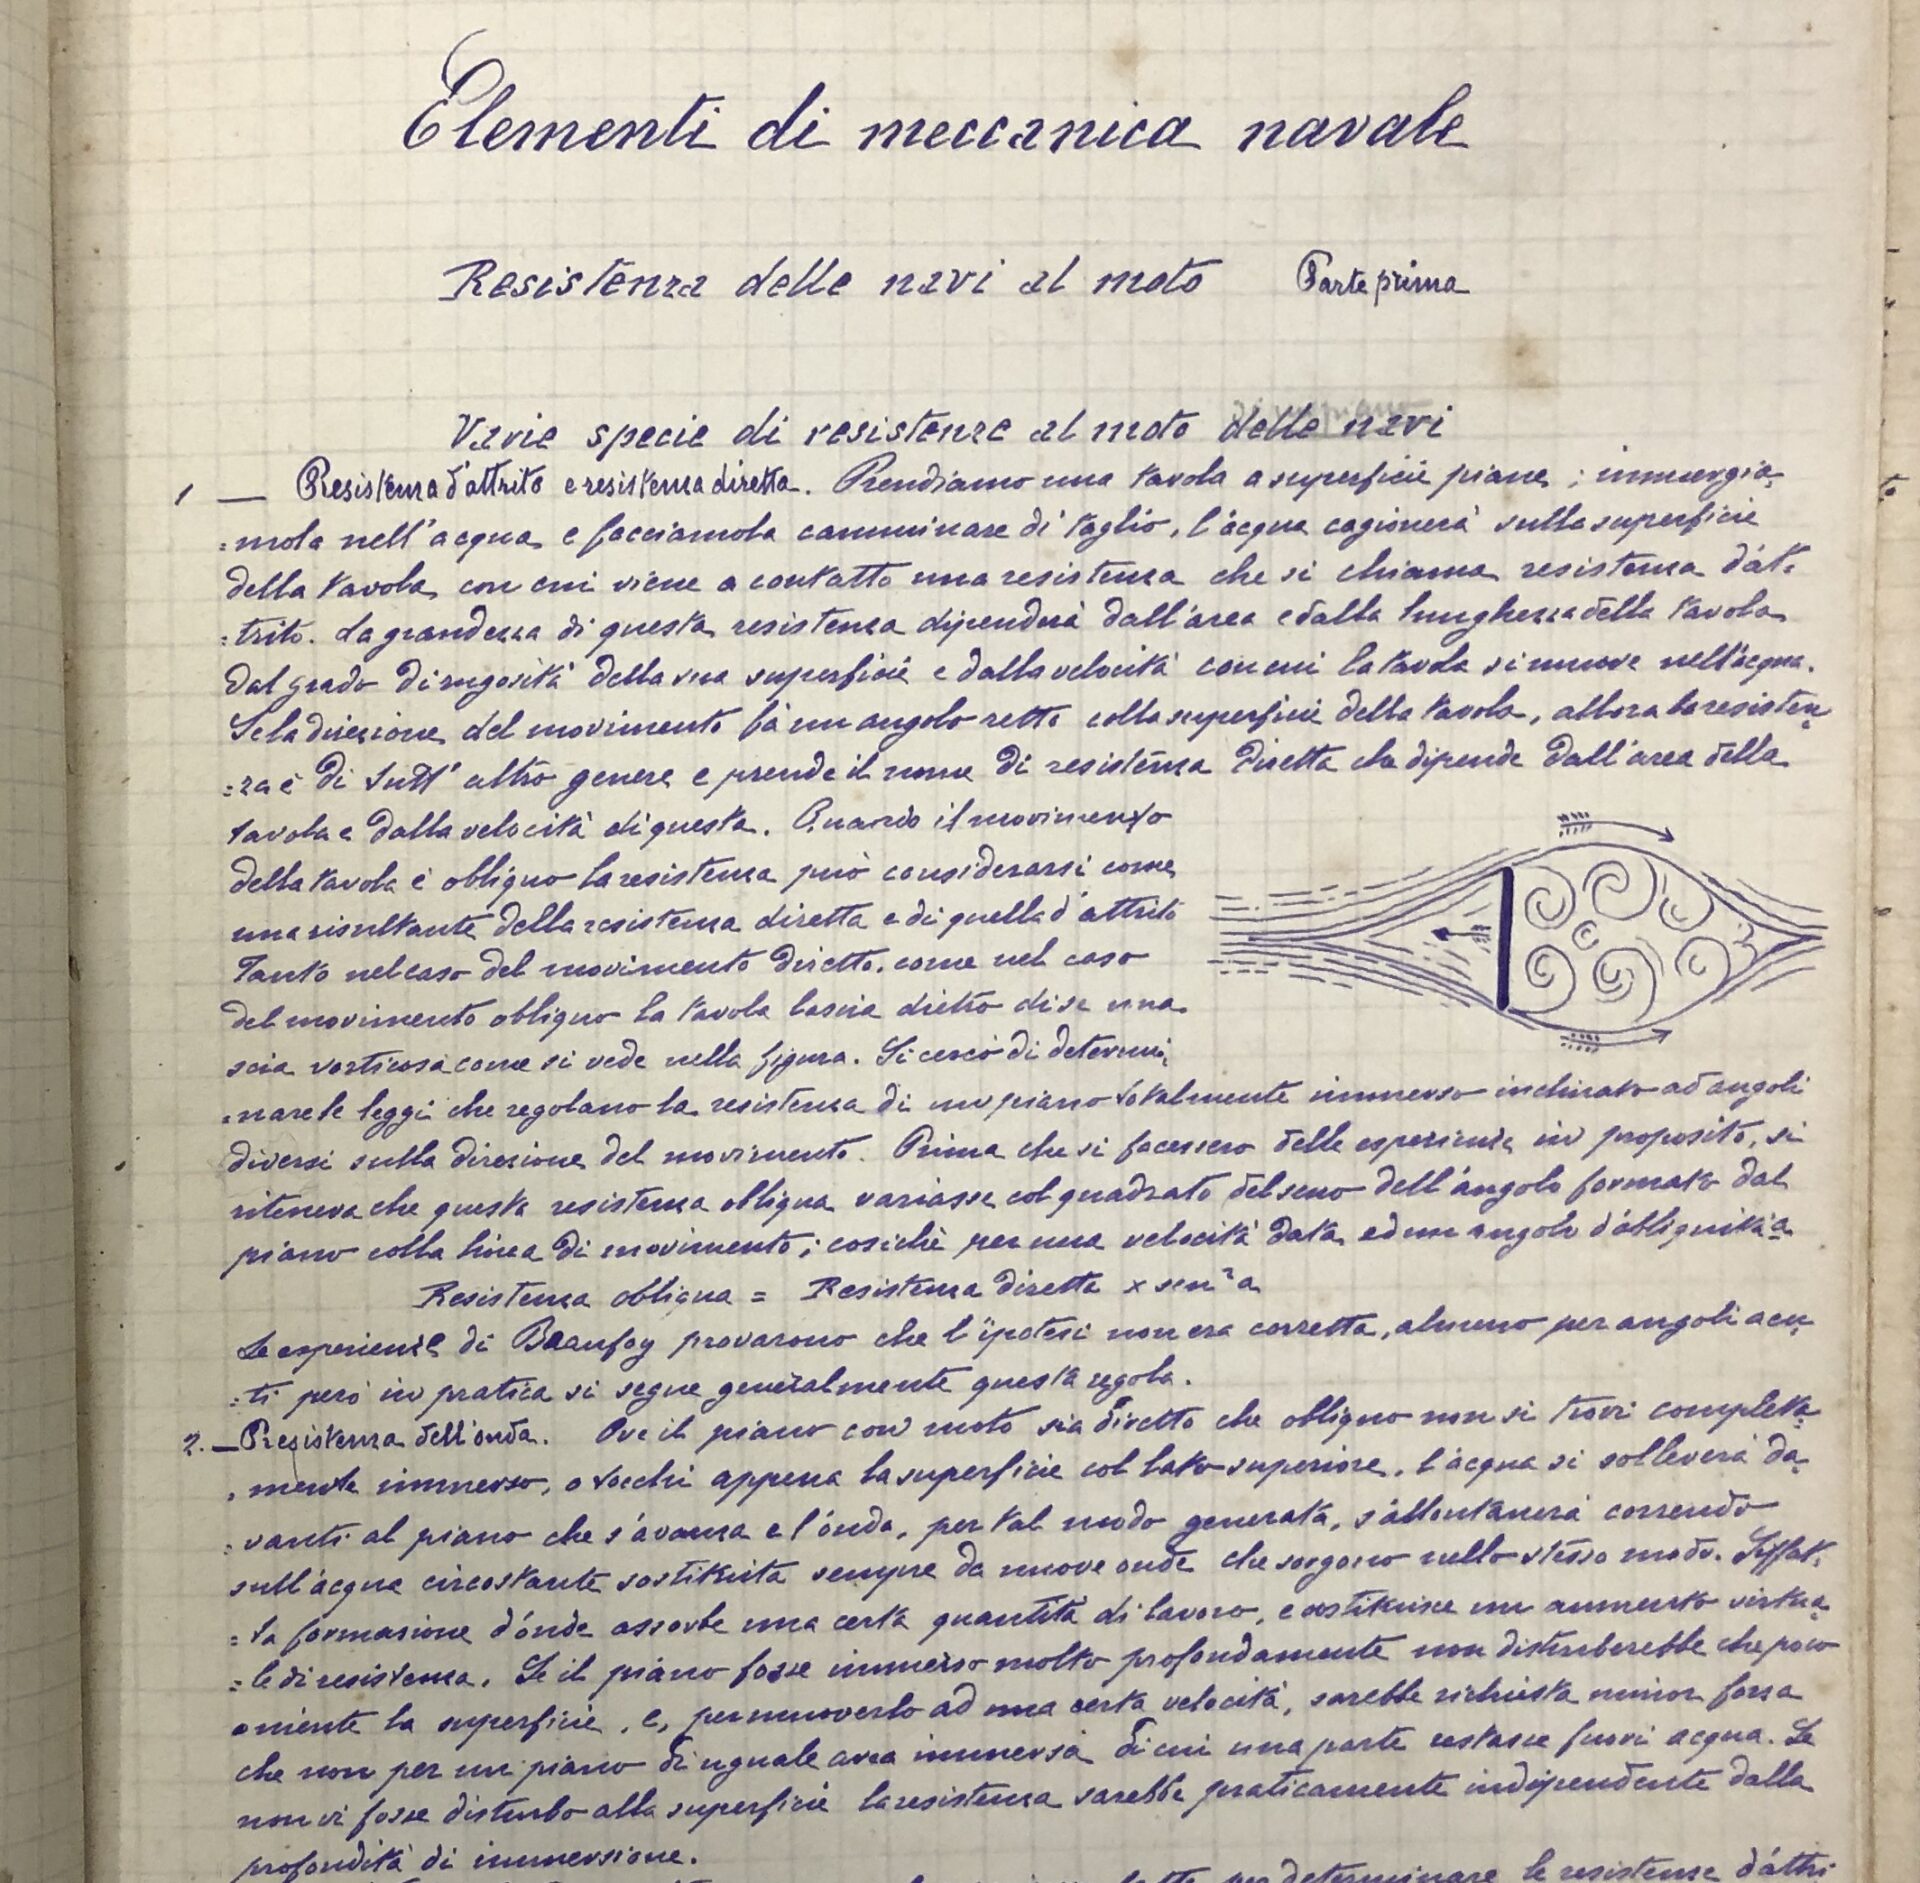 Elementi di meccanica navale
Resistenza delle navi al moto Parte prima
Varie specie di resistenze al moto delle navi
1 — Resistenza d'attrito e resistenza diretta. Prendiamo una tavola a superficie piane; immergia-
=mola nell'acqua e facciamola camminare di taglio, l'acqua cagionerà sulla superficie
della tavola con cui viene a contatto una resistenza che si chiama resistenza d'at=
=trito. La grandezza di questa resistenza dipenderà dall'area e dalla lunghezza della tavola
dal grado di rugosità della sua superficie e dalla velocità con cui la tavola si muove nell'acqua.
Se la direzione del movimento fà un angolo retto colla superficie della tavola, allora la resisten=
=za è di tutt'altro genere e prende il nome di resistenza diretta che dipende dall'area della
tavola e dalla velocità di questa. Quando il movimento
della tavola è obliquo la resistenza può considerarsi come
una risultante della resistenza diretta e di quella d'attrito
Tanto nel caso del movimento diretto, come nel caso
del movimento obliquo la tavola lascia dietro di se una
scia vorticosa come si vede nella figura. Si cercò di determi=
=nare le leggi che regolano la resistenza di un piano totalmente immerso inclinato ad angoli
diversi sulla direzione del movimento. Prima che si facessero delle esperienze in proposito, si
riteneva che questa resistenza obliqua variasse col quadrato del seno dell'angolo formato dal
piano colla linea di movimento; cosichè per una velocità data ed un angolo d'obliquità a
Resistenza obliqua = Resistenza diretta × sen²a
Le esperienze di Beaufoy provarono che l'ipotesi non era corretta, almeno per angoli acu=
=ti però in pratica si segue generalmente questa regola.
2. — Resistenza dell'onda. Ove il piano con moto sia diretto che obliquo non si trovi completa=
=mente immerso, o tocchi appena la superficie col lato superiore, l'acqua si solleverà da=
=vanti al piano che s'avanza e l'onda, per tal modo generata, s'allontanerà correndo
sull'acqua circostante sostituita sempre da nuove onde che sorgono nello stesso modo. Siffat=
=ta formazione d'onde assorbe una certa quantità di lavoro, e costituisce un aumento virtua=
=le di resistenza. Se il piano fosse immerso molto profondamente non disturberebbe che poco
o niente la superficie, e, per muoverlo ad una certa velocità, sarebbe richiesta minor forza
che non per un piano di uguale area immersa di cui una parte restasse fuori acqua. Se
non vi fosse disturbo alla superficie la resistenza sarebbe praticamente indipendente dalla
profondità di immersione.
per determinare le resistenze d'attri